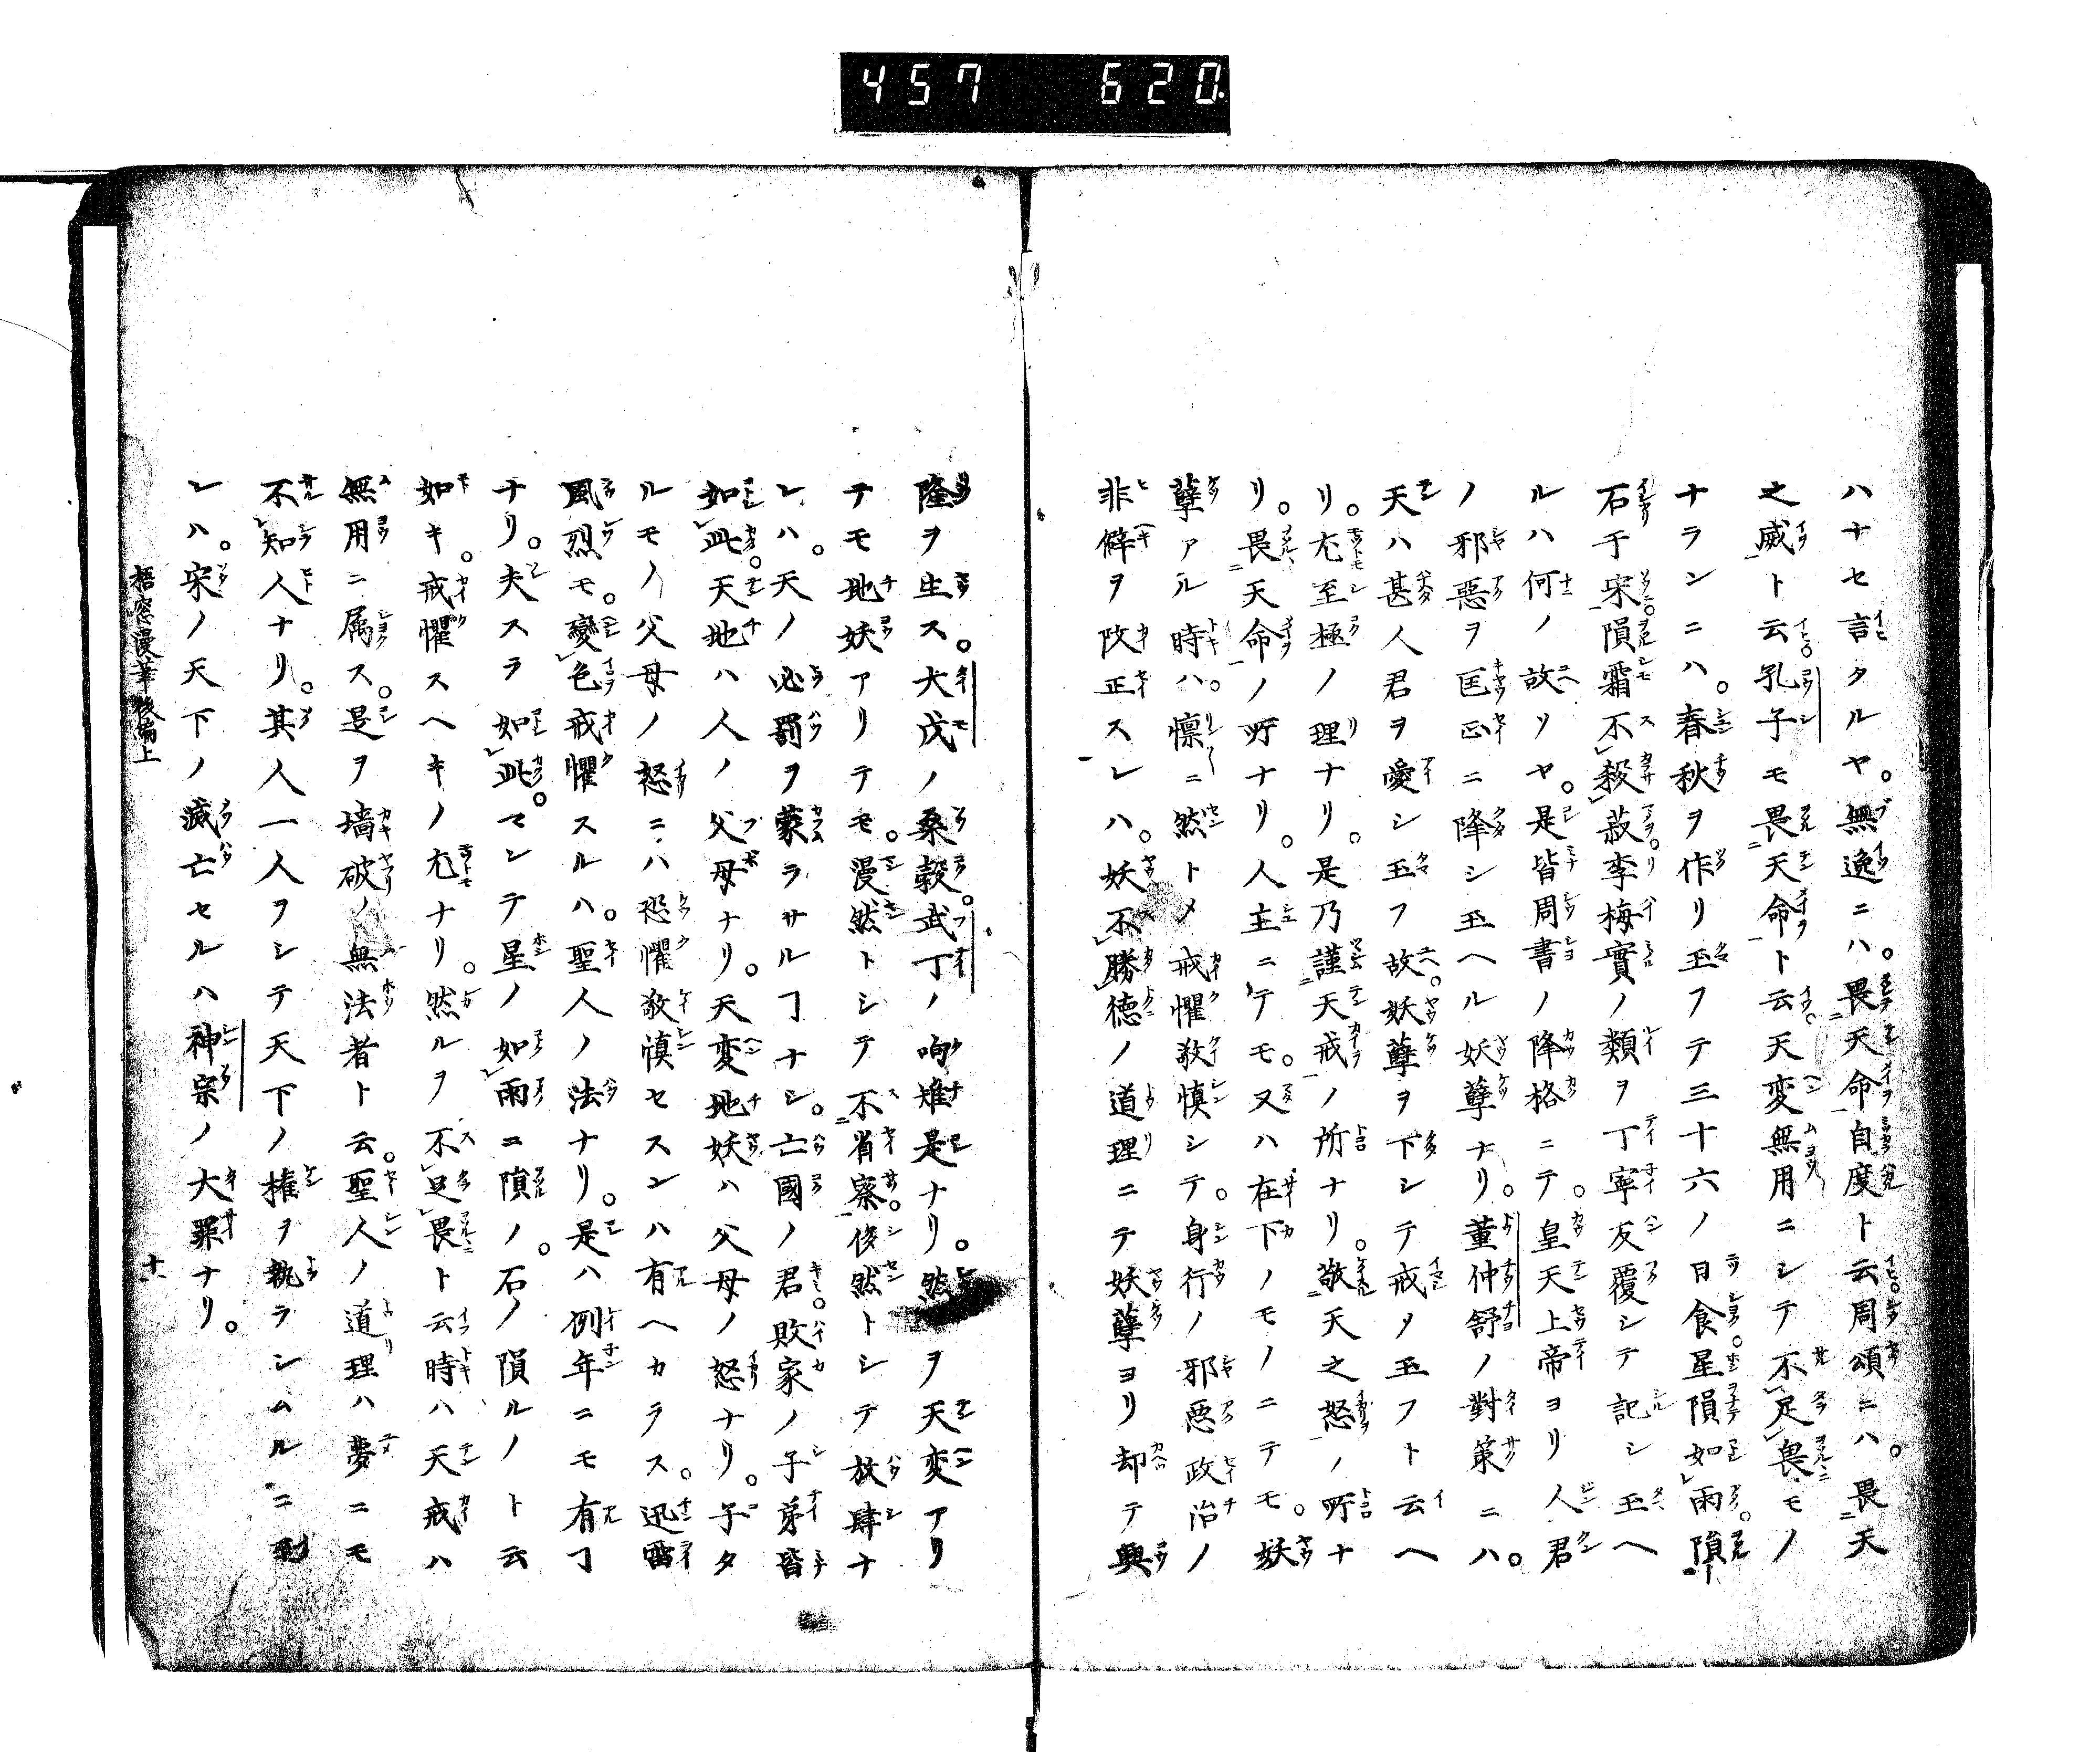 457 620
ハナセ言タルヤ。無逸ニハ。畏天命自度ト云周頌ニハ。畏天
之威ト云孔子モ畏天命ト云天変無用ニシテ不足畏モノ
ナランニハ。春秋ヲ作リ玉フテ三十六ノ日食星隕如雨。隕
石于宋。隕霜不殺菽。李梅實ノ類ヲ丁寧反覆シテ記シ玉ヘ
ルハ何ノ故ソヤ。是皆周書ノ降格ニテ。皇天上帝ヨリ人君
ノ邪惡ヲ匡正ニ降シ玉ヘル妖孽ナリ。董仲舒ノ對策ニハ。
天ハ甚人君ヲ愛シ玉フ故。妖孽ヲ下シテ戒メ玉フト云ヘ
リ。尤至極ノ理ナリ。是乃謹天戒ノ所ナリ。敬天之怒ノ所ナ
リ。畏天命ノ所ナリ。人主ニテモ。又ハ在下ノモノニテモ。妖
孽アル時ハ。懍然トメ戒懼敬慎シテ。身行ノ邪惡政治ノ
非僻ヲ改正スレハ。妖不勝德ノ道理ニテ妖孽ヨリ却テ興
隆ヲ生ス。大戊ノ桑穀。武丁ノ呴雉是ナリ。然ルヲ天変アリ
テモ地妖アリテモ。漫然トシテ不省察。倰然トシテ放肆ナ
レハ。天ノ必罰ヲ蒙ラサルヿナシ。亡國ノ君。敗家ノ子弟皆
如此。天地ハ人ノ父母ナリ。天変地妖ハ父母ノ怒ナリ。子タ
ルモノ父母ノ怒ニハ恐懼敬慎セスンハ有ヘカラス。迅雷
風烈モ。變色戒懼スルハ。聖人ノ法ナリ。是ハ例年ニモ有ヿ
ナリ。夫スラ如此。マシテ星ノ如雨ニ隕ノ。石ノ隕ルノト云
如キ。戒懼スヘキノ尤ナリ。然ルヲ不足畏ト云時ハ天戒ハ
無用ニ属ス。是ヲ墻破ノ無法者ト云。聖人ノ道理ハ夢ニモ
不知人ナリ。其人一人ヲシテ天下ノ権ヲ執ラシムルニ到
レハ。宋ノ天下ノ滅亡セルハ神宗ノ大罪ナリ。
梧窓漫筆後編上
十